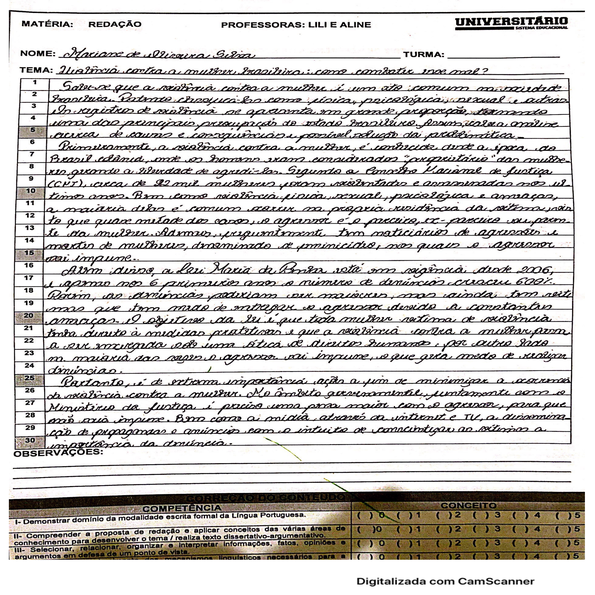 MATÉRIA: REDAÇÃO PROFESSORAS: LILI E ALINE UNIVERSITÁRIO
SISTEMA EDUCACIONAL
NOME: Mariane de Oliveira Silva TURMA:
TEMA: Violência contra a mulher brasileira: como combater esse mal?
1 Sabe-se que a violência contra a mulher é um ato comum na sociedade
2 brasileira. Podendo classificá-los como física, psicológica, sexual e outras.
3 Os registros de violência se apresenta em grande proporção, tornando
4 uma das principais preocupação do estado brasileiro,
5 acerca de causas e consequências e possível solução da problemática.
6 Primeiramente, a violência contra a mulher, é conhecida desde a época do
7 Brasil colônia, onde os homens eram considerados "proprietário" das mulhe-
8 res gerando a liberdade de agredi-las. Segundo o Conselho Nacional de Justiça
9 (CNJ), cerca de mil mulheres foram violentadas e assassinadas nos úl-
10 timos anos. Bem como violência física, sexual, psicológica e ameaças,
11 a maioria delas é comum ocorrer na própria residência da vítima, sen-
12 do que quase metade dos casos, o agressor é o parceiro, ex-parceiro ou paren-
13 te da mulher. Ademais, frequentemente tem noticiários de agressões e
14 mortes de mulheres, denominado de feminicídio, nos quais o agressor
15 sai impune.
16 Além disso, a Lei Maria da Penha está em vigência desde 2006,
17 e apenas nos 6 primeiros anos o número de denúncias cresceu 600%.
18 Porém, as denúncias poderiam ser maiores, mas ainda tem víti-
19 mas que tem medo de entregar o agressor devido a constantes
20 ameaças. O objetivo da lei é que toda mulher vítima de violência
21 tenha direito à medidas protetivas e que a violência contra a mulher passe
22 a ser enxergada sob uma ótica de direitos humanos, por outro lado
23 na maioria das vezes o agressor sai impune, o que gera medo de realizar
24 denúncias.
25 Portanto, é de extrema importância ação a fim de minimizar a ocorrência
26 da violência contra a mulher. No âmbito governamental, juntamente com o
27 Ministério da Justiça, é preciso uma pena maior com o agressor, para que
28 não saia impune. Bem como a mídia através da internet e TV, a dissemina-
29 ção de propagandas e anúncios com o intuito de conscientizar as vítimas a
30 importância da denúncia.
OBSERVAÇÕES:
CORREÇÃO DO CONTEÚDO
COMPETÊNCIA CONCEITO
I- Demonstrar domínio da modalidade escrita formal da Língua Portuguesa. ( )0 ( )1 ( )2 ( )3 ( )4 ( )5
II- Compreender a proposta de redação e aplicar conceitos das várias áreas de ( )0 ( )1 ( )2 ( )3 ( )4 ( )5
conhecimento para desenvolver o tema / realiza texto dissertativo-argumentativo.
III- Selecionar, relacionar, organizar e interpretar informações, fatos, opiniões e ( )0 ( )1 ( )2 ( )3 ( )4 ( )5
argumentos em defesa de um ponto de vista.
mecanismos linguísticos necessários para ( )0 ( )1 ( )2 ( )3 ( )4 ( )5
Digitalizada com CamScanner